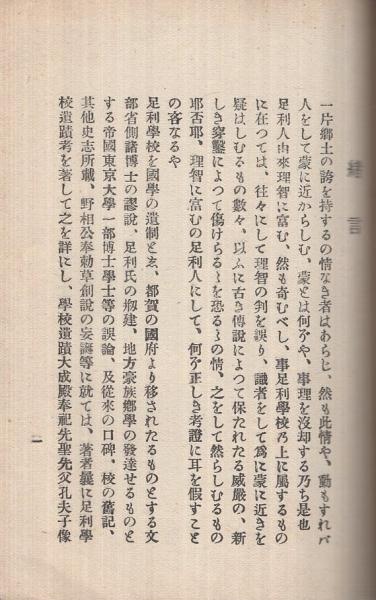 緒言
一片郷土の誇を持するの情なき者はあらじ、然も此情や、動もすれバ
人をして蒙に近からしむ、蒙とは何ぞや、事理を沒却する乃ち是也
足利人由來理智に富む、然も奇むべし、事足利學校乃上に属するもの
に在つては、往々にして理智の判を誤り、識者をして爲に蒙に近きを
疑はしむるもの數々、以ふに古き傳說によつて保たれたる威嚴の、新
しき穿鑿によつて傷けらるゝを恐るゝの情、之をして然らしむるもの
耶否耶、理智に富むの足利人にして、何ぞ正しき考證に耳を假すこと
の吝なるや
足利學校を國學の遺制とゑ、都賀の國府より移されたるものとする文
部省側諸博士の謬說、足利氏の剏建、地方豪族鄕學の發達せるものと
する帝國東京大學一部博士學士等の誤論、及從來の口碑、校の舊記、
其他史志所載、野相公奉勅草創說の妄誕等に就ては、著者曩に足利學
校遺蹟考を著して之を詳にし、學校遺蹟大成殿奉祀先聖先父孔夫子像
一